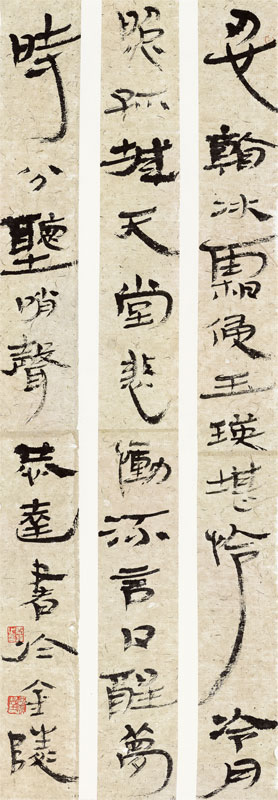 忍翰冰霜侵玉瑛堪怜冷月
照孤城天堂悲慟流言日醒夢
時分聽哨聲恭達書於金陵